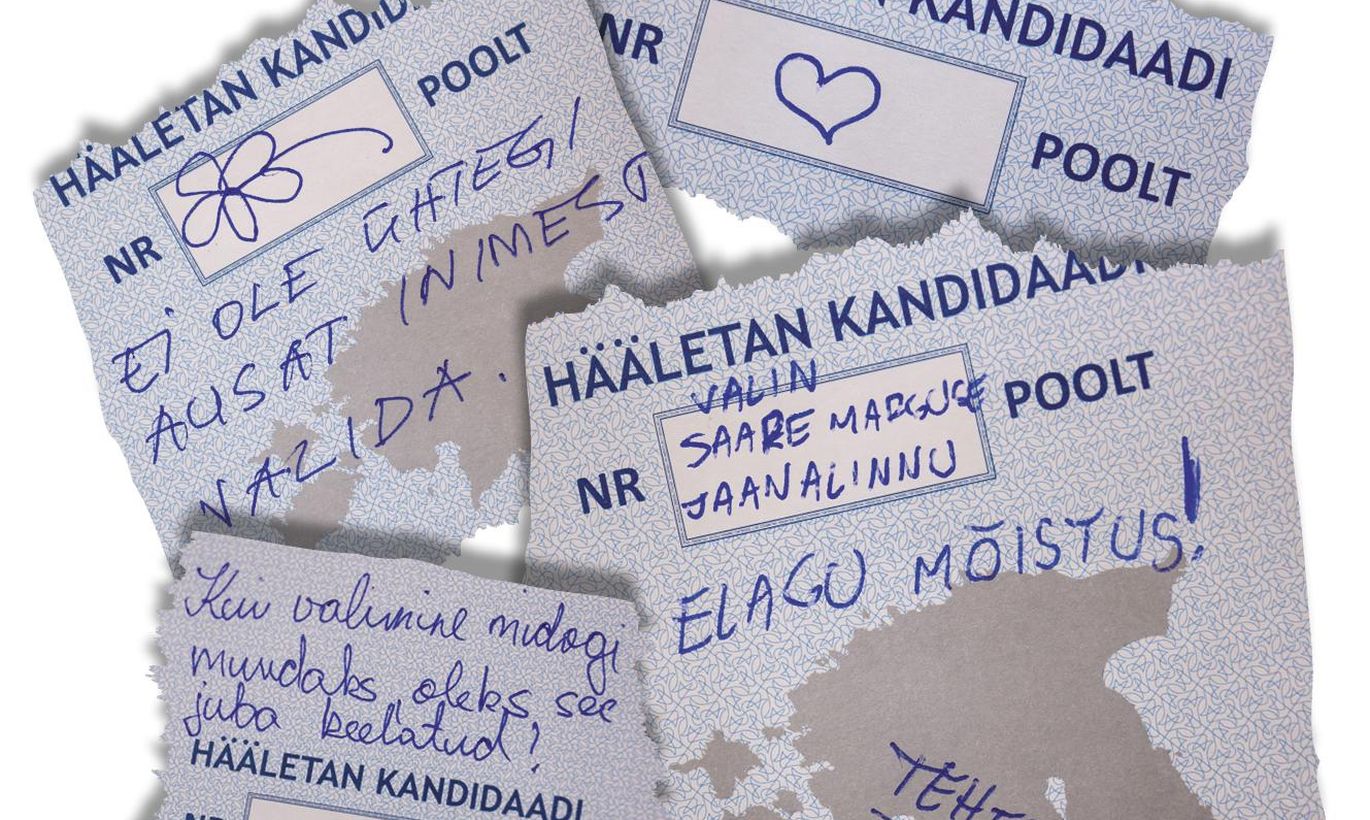 HÄÄLETAN KANDID
NR
POOLT
EI OLE ÜHTEGI
AUSAT INIMEST
VALIDA.
NR
KANDIDAADI
POOLT
HÄÄLETAN KANDIDAADI
NR
POOLT
VALIN
SAARE MARGUSE
JAANALINNU
ELAGU MÕISTUS!
TEHT
Kui valimine midagi
muudaks, oleks see
juba keelatud!
HÄÄLETAN KANDIDAADI
NR